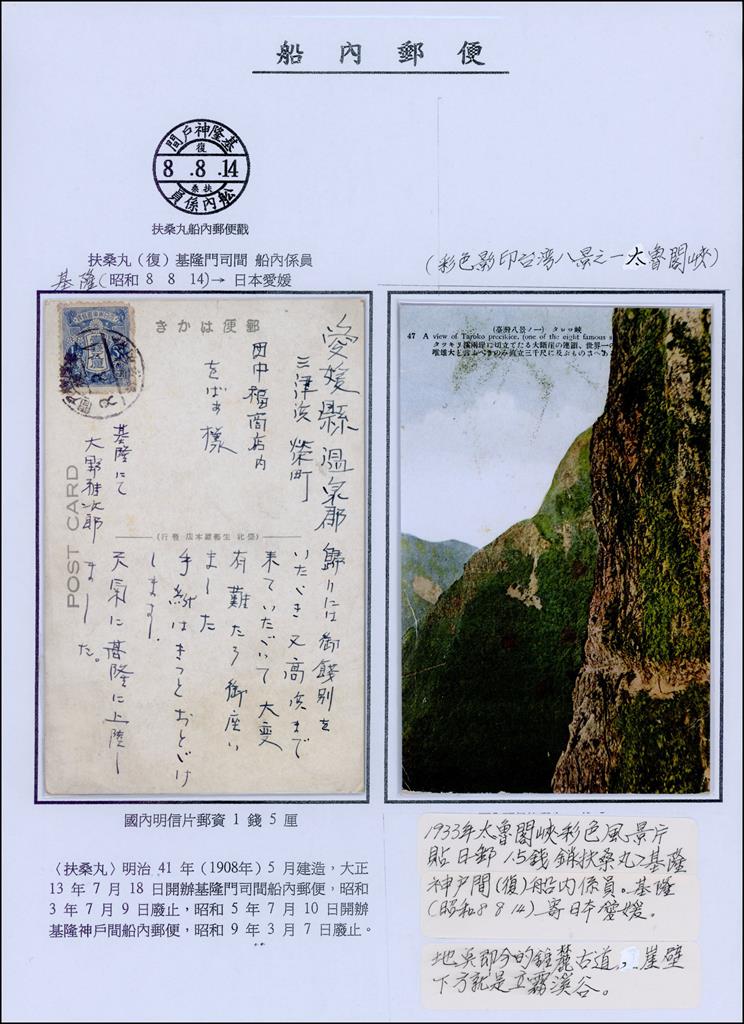 船內郵便
基隆神戶間
復
8.8.14
扶桑
船內係員
扶桑丸船內郵便戳
扶桑丸（復）基隆門司間 船內係員
基隆(昭和 8 8 14)→ 日本愛媛
(彩色影印台湾八景之一太魯閣峽)
郵便はかき
愛媛縣温泉郡
三津浜 榮町
田中福商店内
をばあ様
基隆にて
大野雅次郎
POST CARD
(臺北 生蕃屋本店 發行)
歸りには御餞別を
いたゞき又高浜まで
来ていたゞいて大変
有難たう御座い
ました
手紙はきっとおとどけ
します。
天氣に基隆に上陸し
ました。
(臺灣八景ノ一) タロコ峽
47 A view of Taroko precikice, (one of the eight famous s
タツキリ溪兩岸に切立てたる大斷崖の連嶺、世界一の
雄大と言ふべきのみ直立三千尺に及ぶものさへあ
國內明信片郵資 1 錢 5 厘
〈扶桑丸〉明治 41 年（1908年）5 月建造，大正
13 年 7 月 18 日開辦基隆門司間船內郵便，昭和
3 年 7 月 9 日廢止，昭和 5 年 7 月 10 日開辦
基隆神戶間船內郵便，昭和 9 年 3 月 7 日廢止。
1933年太魯閣峽彩色風景片
貼日郵1.5錢銷扶桑丸>基隆
神戶間(復)船內係員。基隆
(昭和8 8 14)寄日本愛媛。
地点即今的錐麓古道，崖壁
下方就是立霧溪谷。